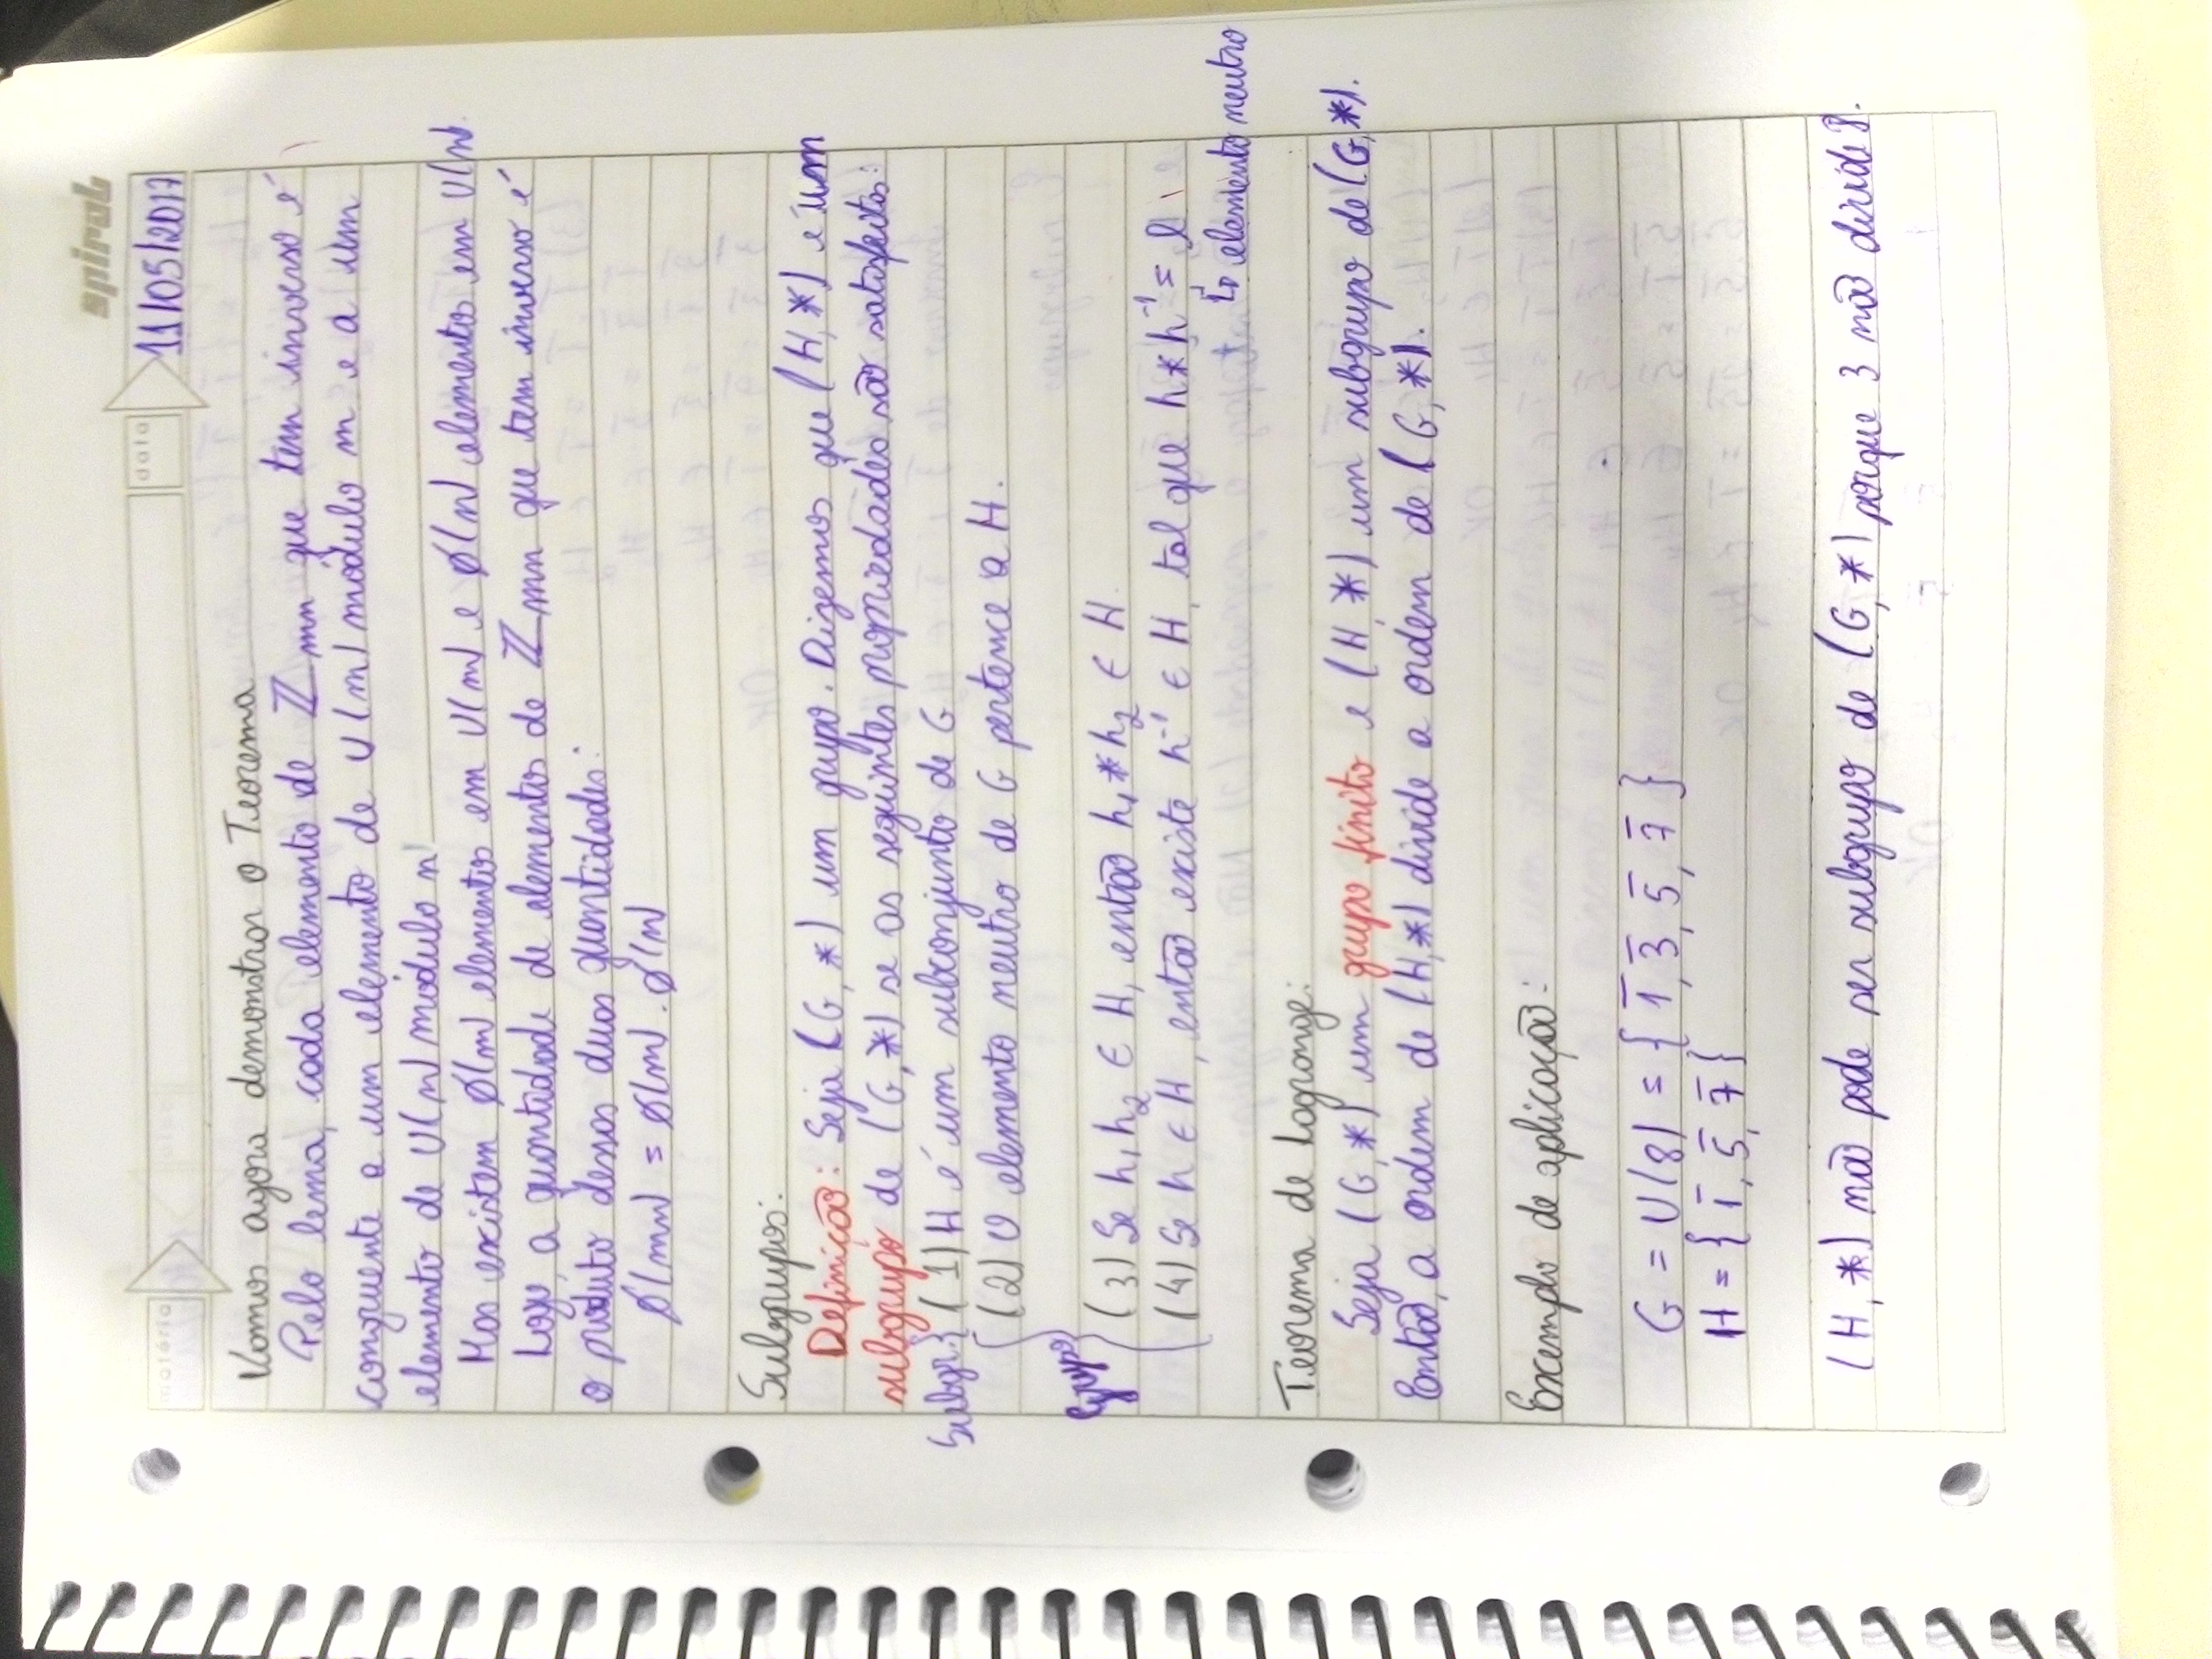 spiral
matéria
data
11/05/2017
Vamos agora demonstrar o Teorema
Pelo lema, cada elemento de ℤmn que tem inverso é
congruente a um elemento de U(m) módulo m e a um
elemento de U(n) módulo n
Mas existem ϕ(m) elementos em U(m) e ϕ(n) elementos em U(n).
Logo, a quantidade de elementos de ℤmn que tem inverso é
o produto dessas duas quantidades:
ϕ(mn) = ϕ(m) . ϕ(n)
Subgrupos:
Definição: Seja (G, *) um grupo. Dizemos que (H, *) é um
subgrupo de (G, *) se as seguintes propriedades são satisfeitas:
Subgr. { (1) H é um subconjunto de G
(2) O elemento neutro de G pertence a H.
Grupo
(3) Se h₁ h₂ ∈ H, então h₁ * h₂ ∈ H.
(4) Se h ∈ H, então existe h⁻¹ ∈ H, tal que h * h⁻¹ = e
↳ elemento neutro
Teorema de Lagrange:
Seja (G, *) um grupo finito e (H, *) um subgrupo de (G, *).
Então, a ordem de (H, *) divide a ordem de (G, *).
Exemplo de aplicação:
G = U(8) = { 1̅, 3̅, 5̅, 7̅ }
H = { 1̅, 5̅, 7̅ }
(H, *) não pode ser subgrupo de (G, *) porque 3 não divide 8.